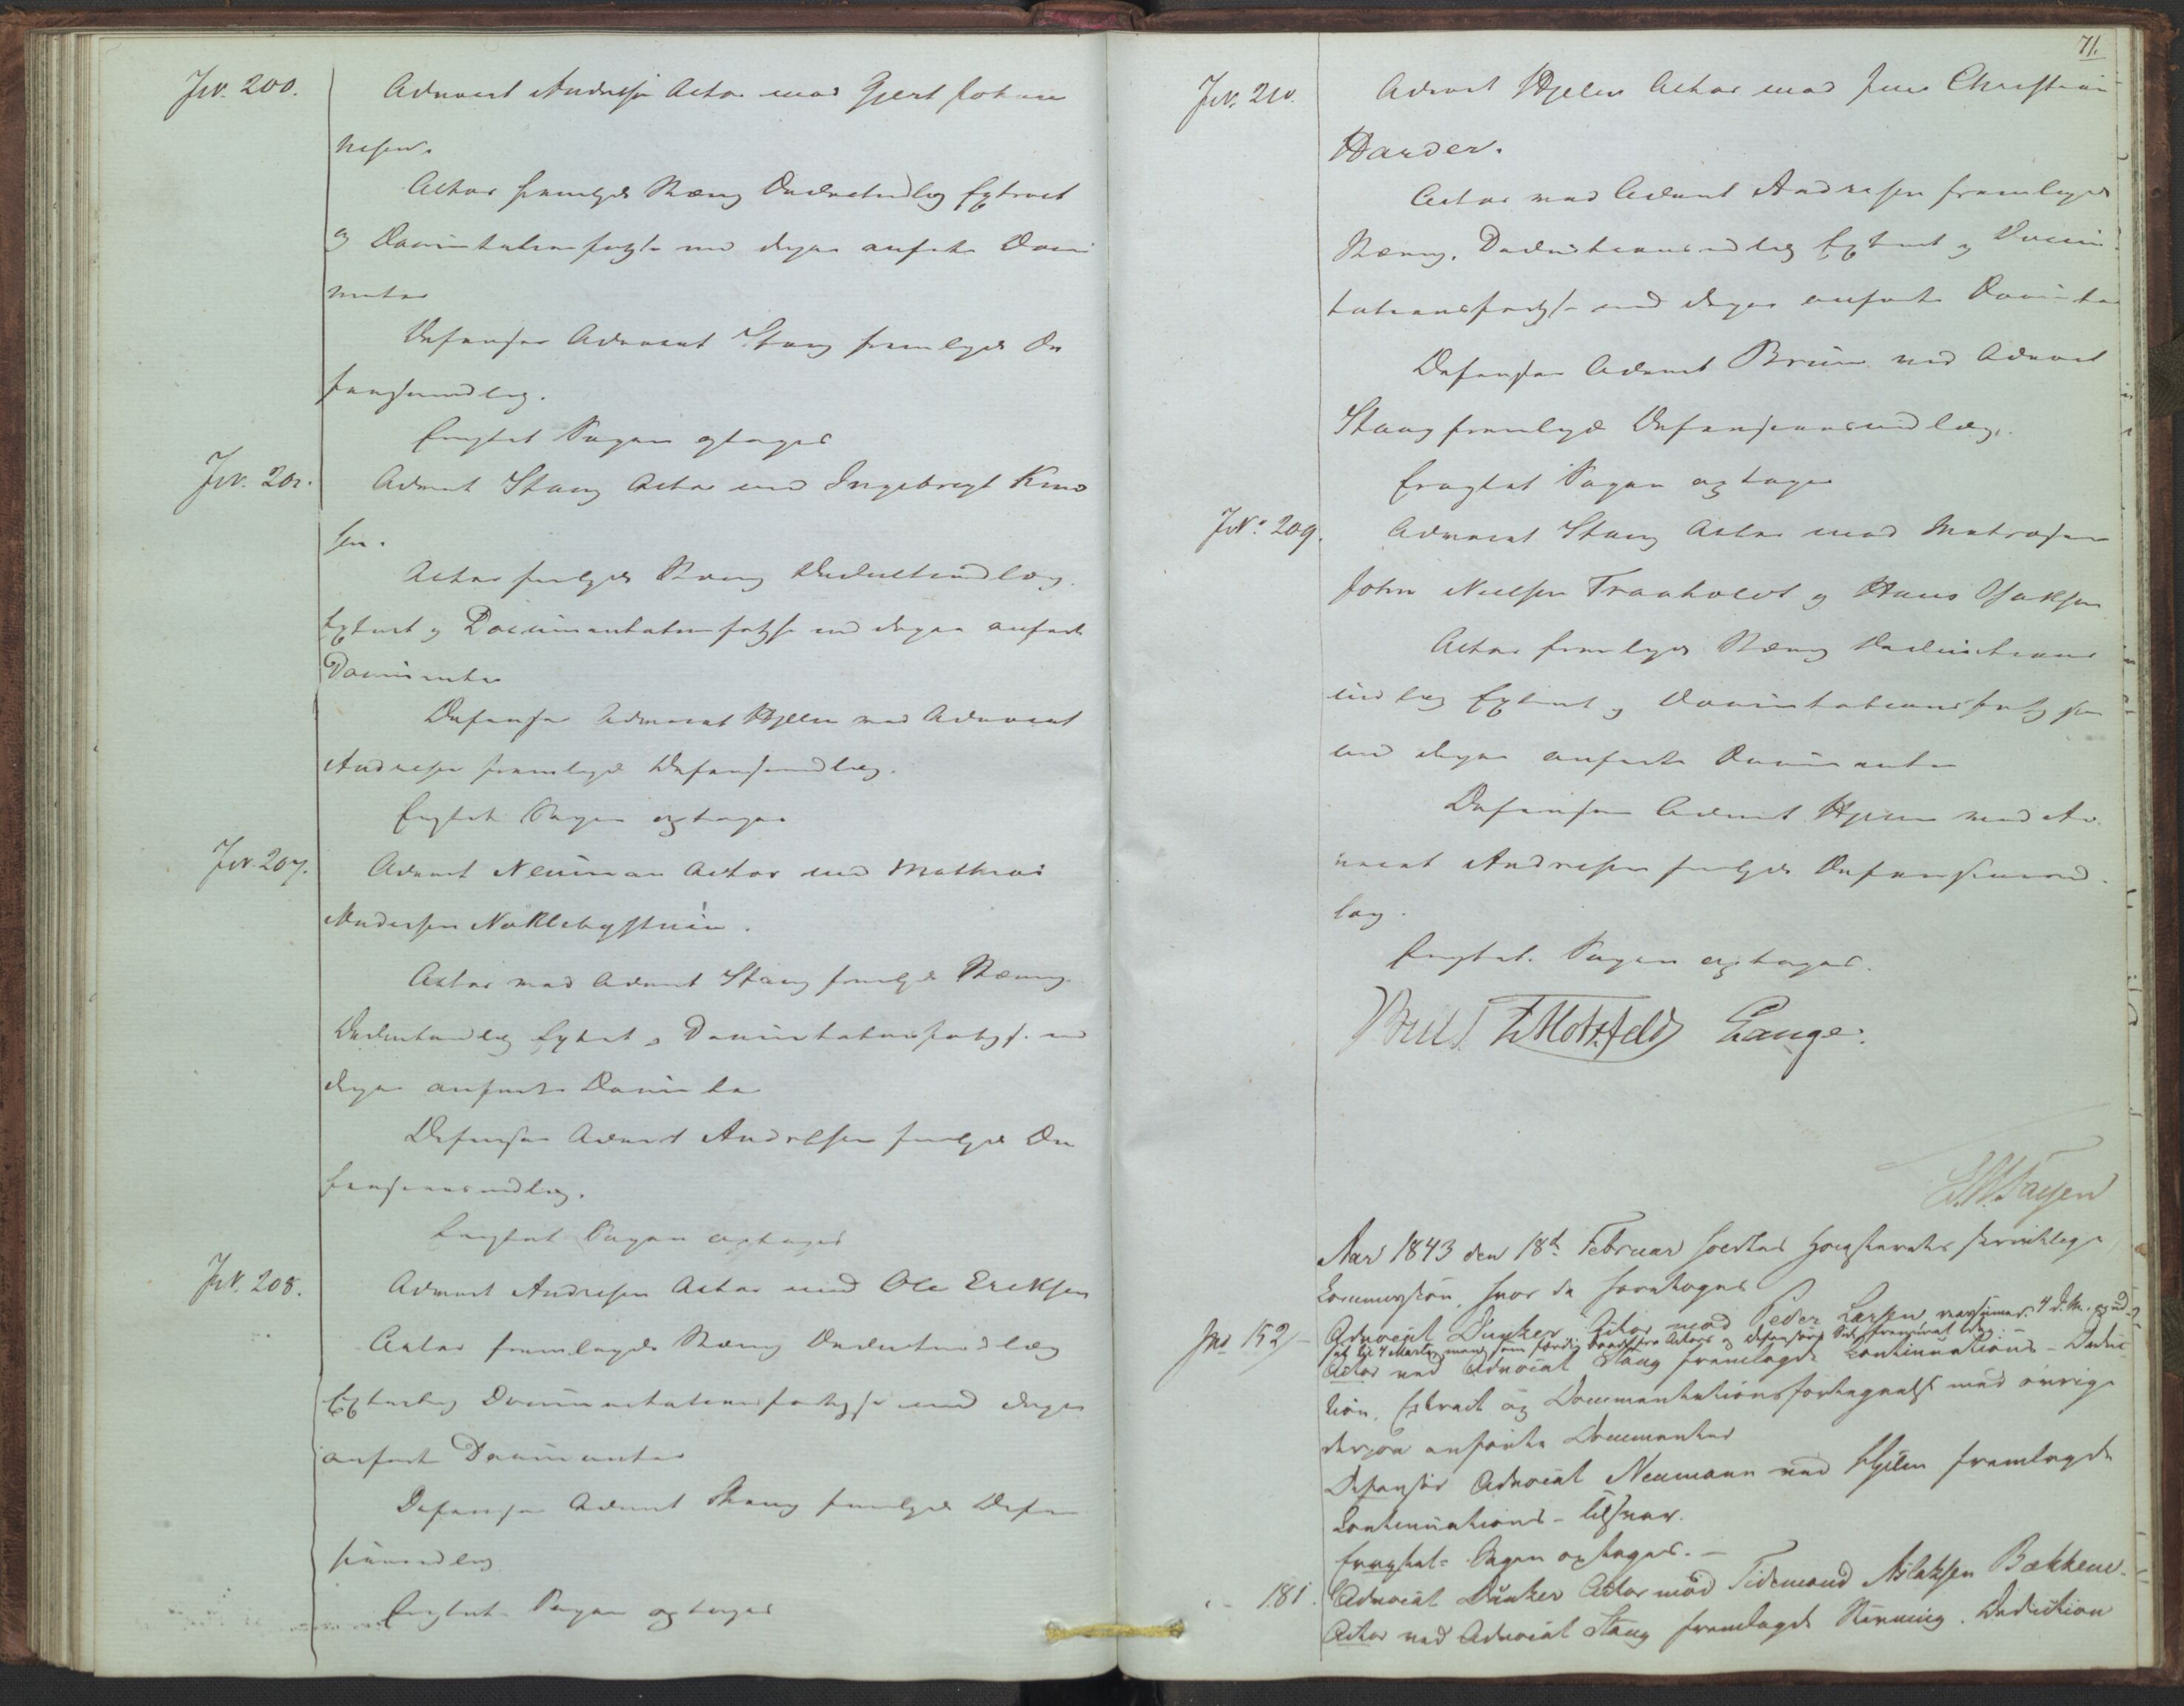 JN. 200. Advocat Andresen Actor mod Gjert Johan
nesen.
Actor fremlagde Stævng Deductindlæg Extract
og Documentationsfortgls med deri anførte Docu
menter
Defensor Advocat Stang fremlagde De
fensindlæg.
Eragtet Sagen optages
JN. 201. Advocat Stang Actor mod Ingebrigt Knud
sen.
Actor fremlagde Stævng Deductindlæg
Extract og Documentationsfortgls med deri anførte
Documenter
Defensor Advocat Hjelm ved Advocat
Andresen fremlagde Defensindlæg.
Eragtet Sagen optages
JN. 207. Advocat Neuman Actor mod Mathias
Andersen Noklebystuen.
Actor ved Advocat Stang fremlagde Stævng
Deductindlæg Extract og Documentationsfortgls med
deri anførte Documenter
Defensor Advocat Andresen fremlagde De
fensionsindlæg.
Eragtet Sagen optages
JN. 208. Advocat Andresen Actor mod Ole Eriksen
Actor fremlagde Stævng Deductindlæg
Extract og Documentationsfortgls med deri
anførte Documenter
Defensor Advocat Stang fremlagde Defen
sionsindlæg
Eragtet Sagen optages
71.
JN. 210. Advocat Hjelm Actor mod Jens Christian
Harder.
Actor ved Advocat Andresen fremlagde
Stævng, Deductionsindlæg Extract og Documen
tationsfortgls med deri anførte Documenter
Defensor Advocat Bruun ved Advocat
Stang fremlagde Defensionsindlæg.
Eragtet Sagen optages
JN. 209. Advocat Stang Actor mod Matroserne
John Nielsen Traaholdt og Hans Isaksen
Actor fremlagde Stævng Deductions
indlæg Extract og Documentationsfortgls
med deri anførte Documenter
Defensor Advocat Hjelm ved Ad
vocat Andresen fremlagde Defensionsind
læg.
Eragtet. Sagen optages.
Motzfeldt Lange.
Aar 1843 den 18de Februar holdtes Høiesterets skriftlige
Commission, hvor da foretoges
JN. 152 Advocat Dunker Actor mod Peder Larsen
Actor ved Advocat Stang fremlagde Continuations-Deduc-
tion, Extract og Documentationsfortegnelse med øvrige
derpaa anførte Documenter
Defensor Advocat Neumann ved Hjelm fremlagde
Continuations-Tilsvar.
Eragtet: Sagen optages. —
- 181. Advocat Dunker Actor mod Tidemand Aslaksen Bækkene.
Actor ved Advocat Stang fremlagde Stævning. Deduction